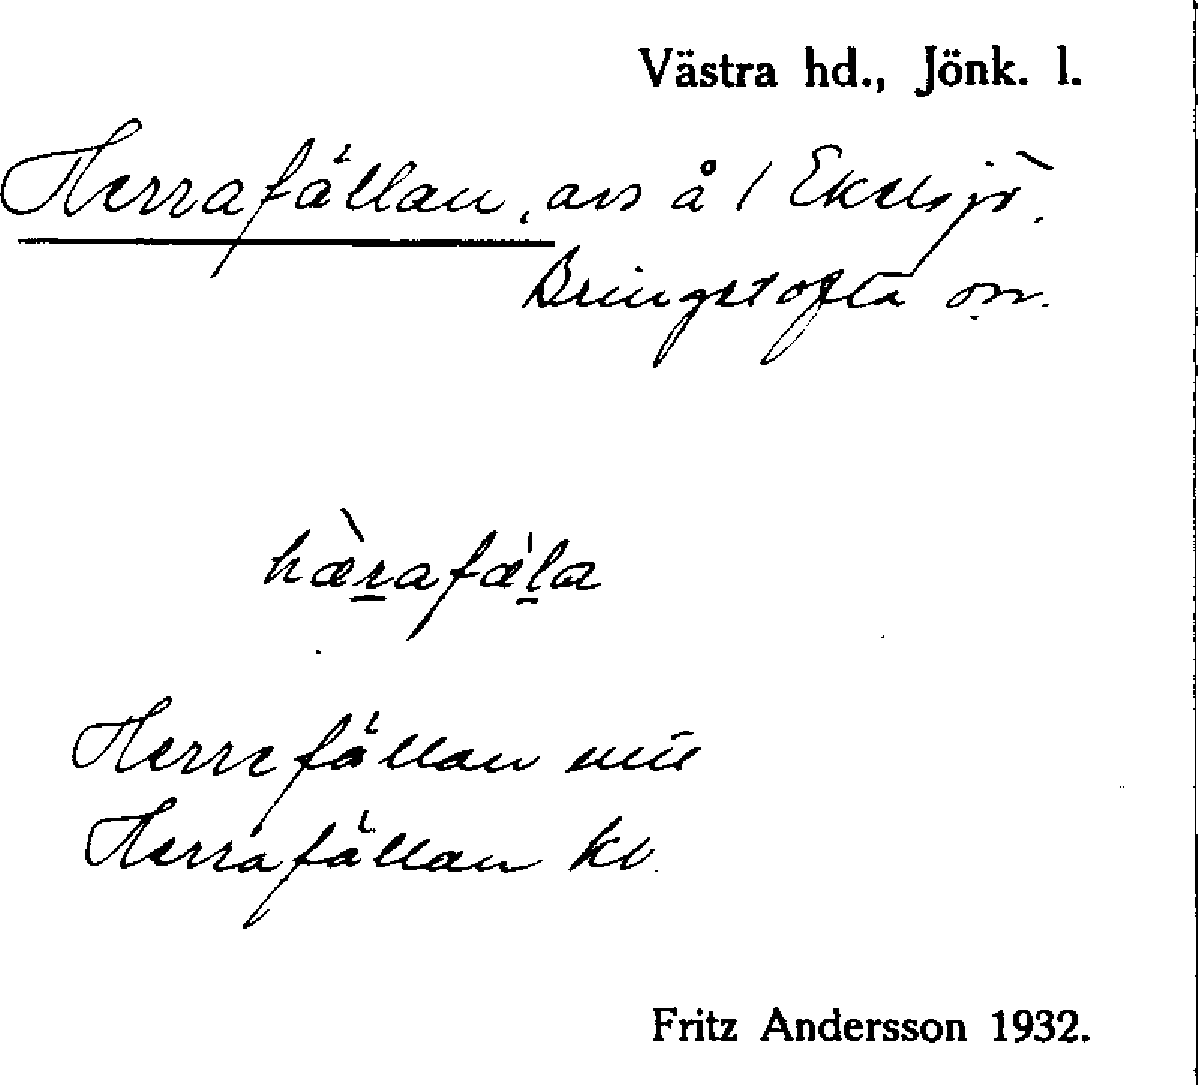 Västra hd., Jönk. l.
Herrafällan, avs å 1 Ekelsjö.
Bringetofta sn.
hæ̀rafæ̀la
Herrefällan
Herrafällan kv.
Fritz Andersson 1932.